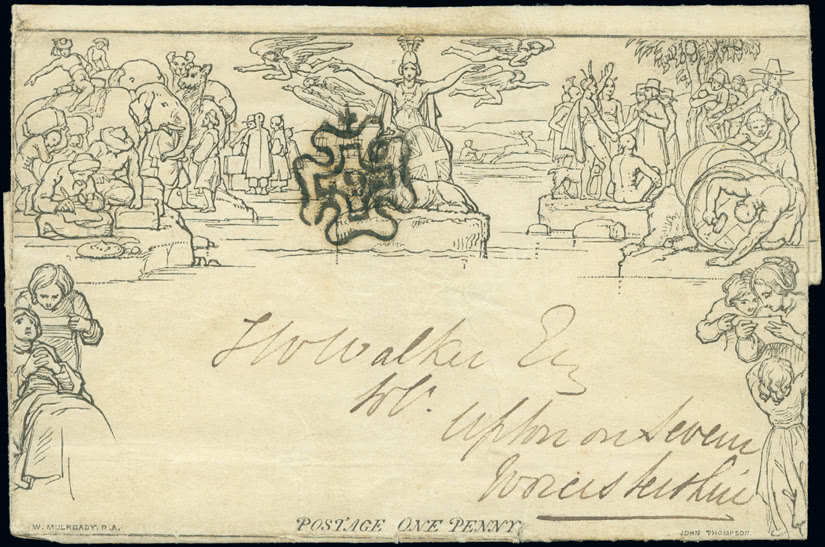 J W Walker Esq
Solr.
Upton on Severn
Worcestershire
W. MULREADY. R.A.
POSTAGE ONE PENNY.
JOHN THOMPSON